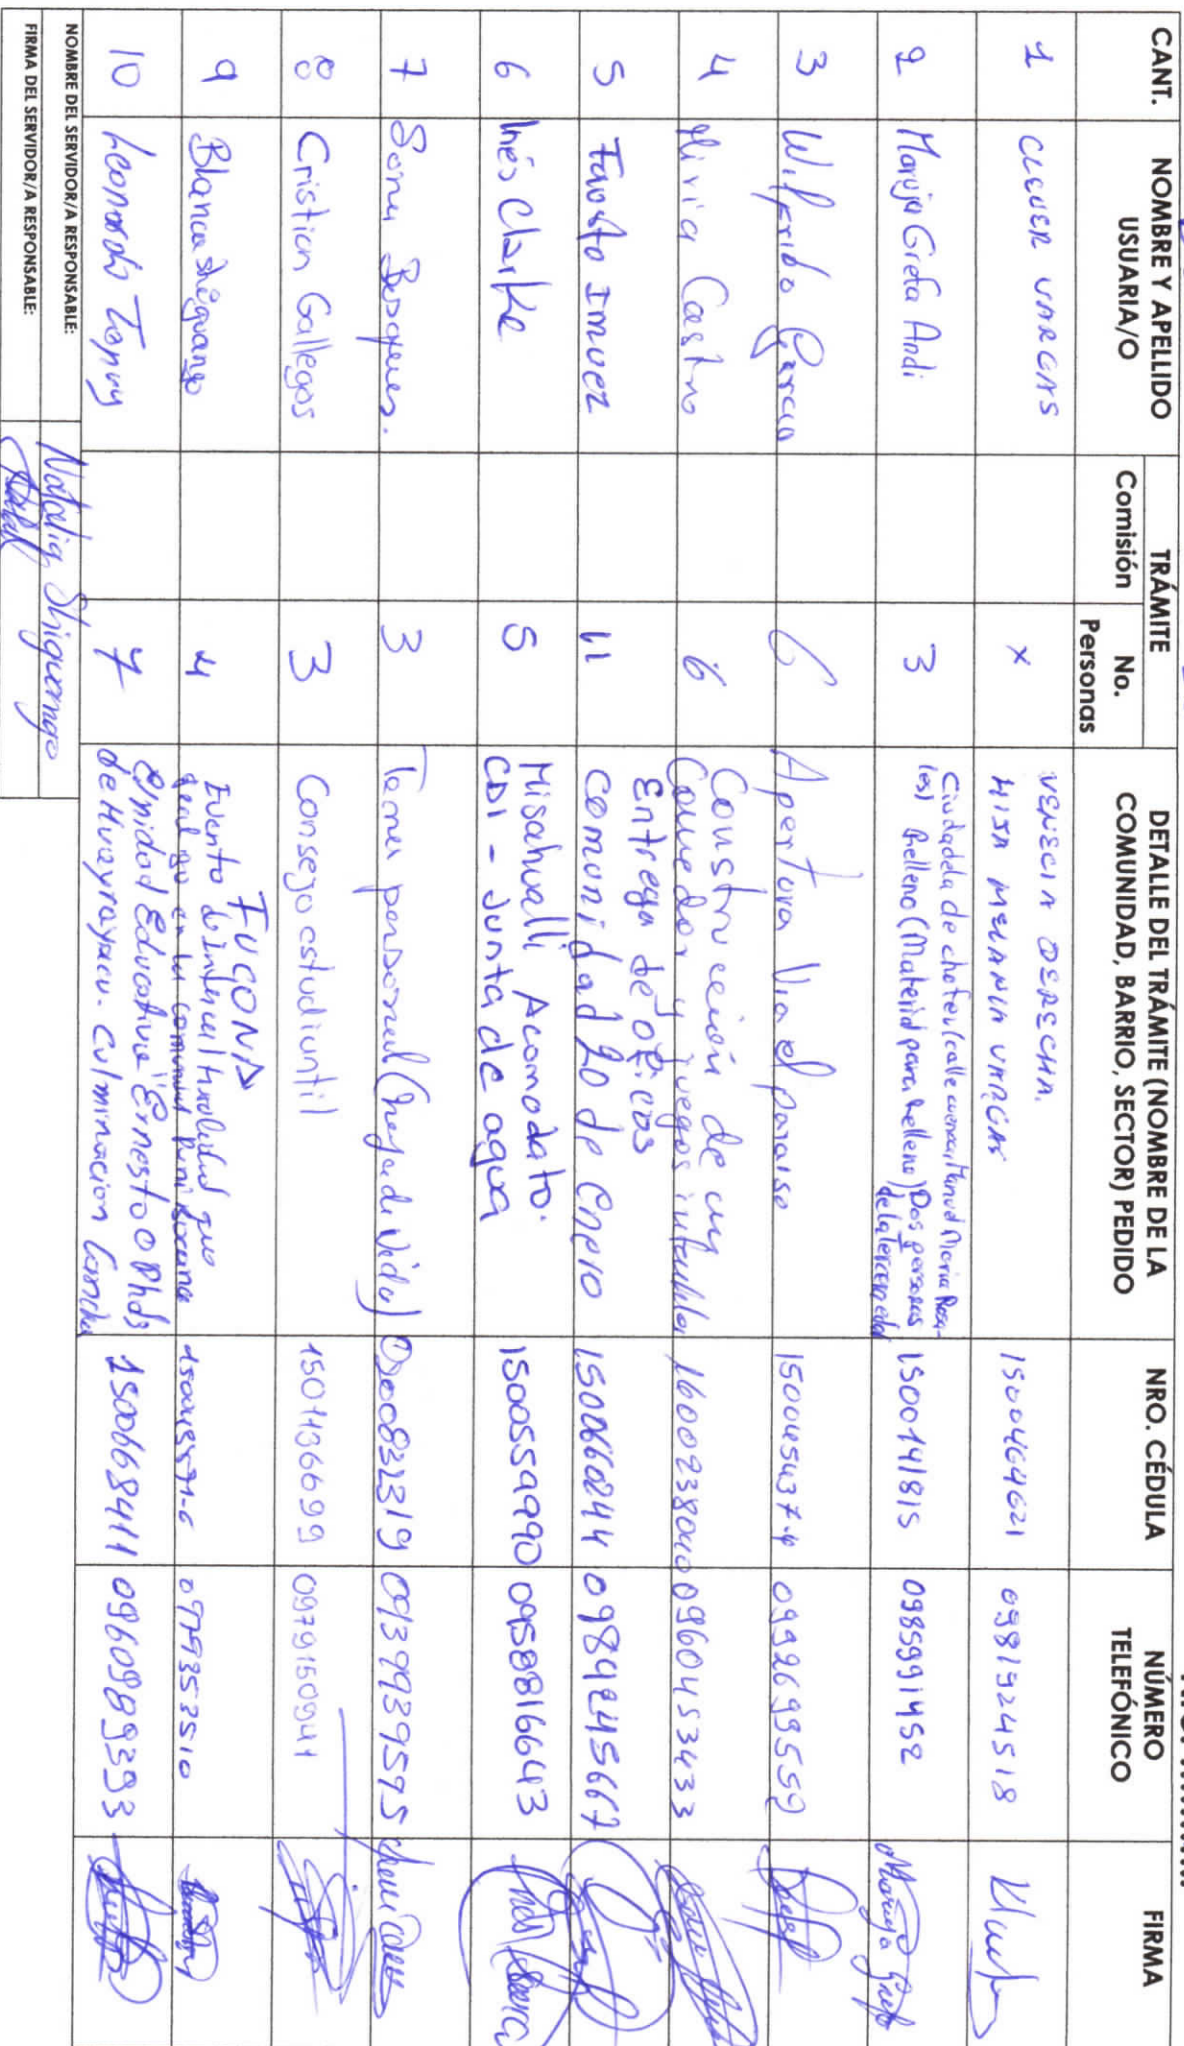 CANT.
NOMBRE Y APELLIDO
USUARIA/O
TRÁMITE
Comisión
No.
Personas
DETALLE DEL TRÁMITE (NOMBRE DE LA
COMUNIDAD, BARRIO, SECTOR) PEDIDO
NRO. CÉDULA
NÚMERO
TELEFÓNICO
FIRMA
1
CLEVER VARGAS
x
VENECIA DERECHA.
HIJA MELANIA VARGAS
1500464621
0981924518
2
Maruja Grefa Andi
3
Ciudadela de chofer (calle cuenca, Manuel Maria Rosa-
les) Relleno (Material para relleno) Dos personas
de la tercera edad
1500141815
0985991452
Maruja Grefa
3
Wilfrido Garcia
6
Apertura Via el paraiso
150045437-4
0992699559
4
Livia Castro
6
Construcción de un
Comedor y juegos infantiles
1600238040
0960453433
5
Fausto Imuez
11
Entrega de oficios
Comunidad 20 de Enero
1500660244
0984245667
6
Inés Clarke
5
Misahualli Acomodato.
CDI - Junta de agua
150055990
0958816643
7
Sonia Bosques.
3
Tema personal (hoja de vida)
0500832319
0939939595
8
Cristian Gallegos
3
Consejo estudiantil
1501136699
0979150941
9
Blanca Shiguango
4
FUCONA
Evento de Interculturalidad que
en la comunid
0979353510
10
Leonardo Tapuy
7
Unidad Educativa "Ernesto O Rhds
de Huayrayacu. Culminacion Cancha
1500668411
0960989393
NOMBRE DEL SERVIDOR/A RESPONSABLE:
Natalia Shiguango
FIRMA DEL SERVIDOR/A RESPONSABLE: